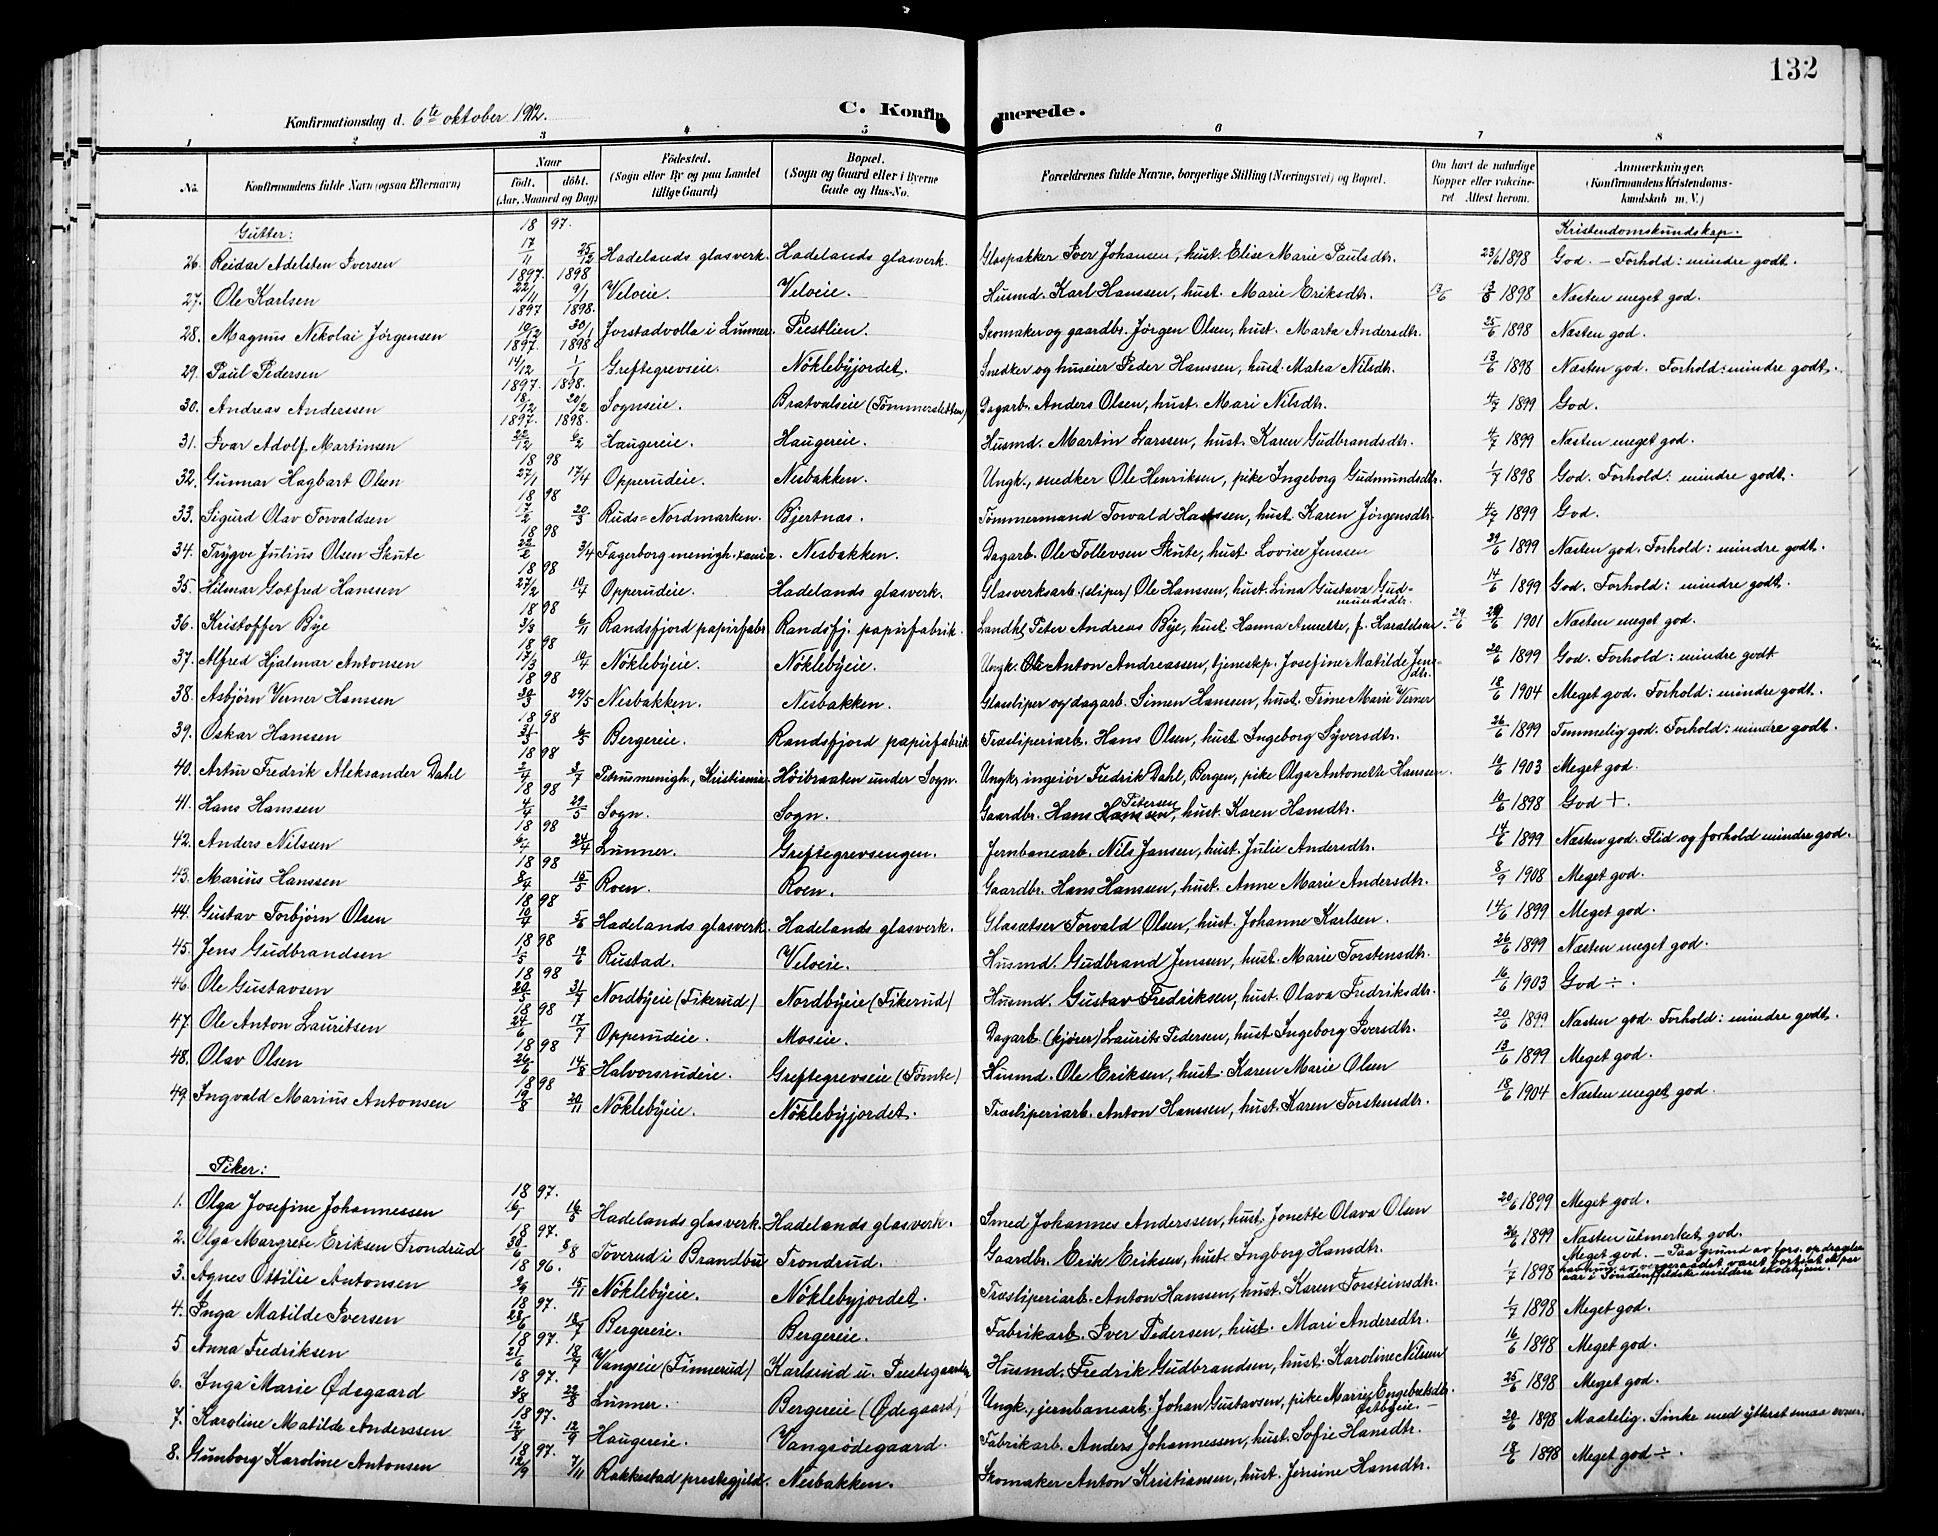 132
Konfirmationsdag d. 6te oktober 1912.
C. Konfirmerede.
1 2 3 4 5 6 7 8
No. Konfirmandens fulde Navn (ogsaa Efternavn) Naar födt. döbt. (Aar, Maaned og Dag) Födested. (Sogn eller By og paa Landet tillige Gaard) Bopæl. (Sogn og Gaard eller i Byerne Gade og Hus-No. Forældrenes fulde Navne, borgerlige Stilling (Næringsvei) og Bopæl. Om havt de naturlige Kopper eller vakcineret Attest herom. Anmærkninger. (Konfirmandens Kristendomskundskab m. V.)
Gutter: 18 97. Kristendomskundskap.
26. Reidar Adelsten Iversen 17/11 25/12 Hadelands glasverk. Hadelands glasverk. Glaspakker Iver Johansen, hust. Elise Marie Paulsdtr. 23/6 1898 God. – Forhold: mindre godt.
1897. 1898
27. Ole Karlsen 22/11 9/1 Veloeie. Veloeie. Husmd. Karl Hanssen, hust. Marie Eriksdtr. 13/6 1898 Næsten meget god.
1897 1898.
28. Magnus Nikolai Jörgensen 10/12 30/1 Jorstadvolla i Lunner. Prestlien. Skomaker og gaardbr. Jörgen Olsen, hust. Marta Andersdtr. 25/6 1898 Næsten god.
1897. 1898
29. Paul Pedersen 14/12 1/1 Greftegrevseie. Nöklebyjordet. Snedker og huseier Peder Hanssen, hust. Matea Nilsdtr. 13/6 1898 Næsten god. Forhold: mindre godt.
1897. 1898.
30. Andreas Anderssen 18/12 20/2 Sognseie. Bratvalseie (Tömmersletten) Dagarb. Anders Olsen, hust. Mari Nilsdtr. 4/7 1899 God.
1897. 1898.
31. Ivar Adolf Martinsen 22/12 6/2 Haugereie. Haugereie. Husmd. Martin Larssen, hust. Karen Gudbrandsdtr. 4/7 1899 Næsten meget god.
18 98
32. Gunnar Hagbart Olsen 27/1 17/4 Opperudeie. Nesbakken. Ungk., snedker Ole Henriksen, pike Ingeborg Gudmundsdtr. 1/7 1898 God. Forhold: mindre godt.
18 98
33. Sigurd Olav Torvaldsen 17/2 20/3 Ruds-Nordmarken. Bjertnæs. Tömmermand Torvald Hanssen, hust. Karen Jörgensdtr. 4/7 1899 God.
18 98
34. Trygve Julius Olsen Skute 22/2 3/4 Fagerborg menigh. Xania. Nesbakken. Dagarb. Ole Tollevsen Skute, hust. Lovise Jenssen 29/6 1899 Næsten god. Forhold: mindre godt.
18 98
35. Hilmar Gotfred Hanssen 27/2 10/4 Opperudeie. Hadelands glasverk. Glasverksarb. (sliper) Ole Hanssen, hust. Lina Gustava Gudmundsdtr. 14/6 1899 God. Forhold: mindre godt.
18 98
36. Kristoffer Bye 3/3 6/11 Randsfjord papirfabr. Randsfj. papirfabrik. Landh. Peter Andreas Bye, hust. Hanna Annette, f. Haraldsen. 29/6 1901 Næsten meget god.
18 98
37. Alfred Hjalmar Antonsen 17/3 10/4 Nöklebyeie. Nöklebyeie. Ungk. Ole Anton Andreassen, tjenestep. Josefine Matilde Jensdtr. 20/6 1899 God. Forhold: mindre godt
18 98
38. Asbjörn Verner Hanssen 20/3 29/5 Nesbakken. Nesbakken. Glassliper og dagarb. Simen Hanssen, hust. Trine Marie Verner 18/6 1904 Meget god. Forhold: mindre godt.
18 98
39. Oskar Hanssen 31/3 6/5 Bergereie. Randsfjord papirfabrik Træsliperiarb. Hans Olsen, hust. Ingeborg Syversdtr. 26/6 1899 Temmelig god. Forhold: mindre godt.
18 98
40. Artur Fredrik Aleksander Dahl 2/4 3/7 Petrusmenigh., Kristiania Höibraaten under Sogn. Ungk, ingeiör Fredrik Dahl, Bergen, pike Olga Antonette Hanssen. 10/6 1903 Meget god.
18 98
41. Hans Hanssen 4/4 29/5 Sogn. Sogn. Gaardbr. Hans Petersen, hust. Karen Hansdtr. 10/6 1898 God +.
18 98
42. Anders Nilssen 6/4 24/4 Lunner. Greftegrevsengen. Jernbanearb. Nils Jansen, hust. Julie Andersdtr. 14/6 1899 Næsten god. Flid og forhold mindre god.
18 98
43. Marius Hanssen 8/4 15/5 Roen. Roen. Gaardbr. Hans Hanssen, hust. Anne Marie Andersdtr. 8/9 1908 Meget god.
18 98
44. Gustav Torbjörn Olsen 10/4 5/6 Hadelands glasverk. Hadelands glasverk. Glasætser Torvald Olsen, hust. Johanne Karlsen. 14/6 1899 Meget god.
18 98
45. Jens Gudbrandsen 1/5 12/6 Rustad. Veloeie. Husmd. Gudbrand Jenssen, hust. Marie Torstensdtr. 26/6 1899 Næsten meget god.
18 98
46. Ole Gustavsen 20/5 31/7 Nordbyeie (Fikerud) Nordbyeie (Fikerud) Husmd. Gustav Fredriksen, hust. Olava Fredriksdtr. 16/6 1903 God ÷.
18 98
47. Ole Anton Lauritsen 24/6 17/7 Opperudeie. Moseie. Dagarb. (kjörer) Laurits Pedersen, hust. Ingeborg Iversdtr. 20/6 1899 Næsten god. Forhold: mindre godt.
18 98
48. Olav Olsen 26/6 14/8 Halvorsrudeie. Greftegrevseie (Tömte) Husmd. Ole Eriksen, hust. Karen Marie Olsen 13/6 1899 Meget god.
18 98
49. Ingvald Marius Antonsen 19/8 20/11 Nöklebyeie. Nöklebyjordet. Træsliperiarb. Anton Hanssen, hust. Karen Torstensdtr. 18/6 1904 Næsten meget god.
Piker:
18 97.
1. Olga Josefine Johannessen 16/1 16/5 Hadelands glasverk. Hadelands glasverk. Smed Johannes Anderssen, hust. Jonette Olava Olsen 20/6 1899 Meget god.
18 97.
2. Olga Margrete Eriksen Trondrud 30/6 8/8 Toverud i Brandbu Trondrud. Gaardbr. Erik Eriksen, hust. Ingborg Hansdtr. 26/6 1899 Næsten utmerket god.
18 96.
3. Agnes Ottilie Antonsen 9/9 15/11 Nöklebyeie. Nöklebyjordet. Træsliperiarb. Anton Hanssen, hust. Karen Torsteinsdtr. 1/7 1898 Meget god. – Paa grund av fors. opdragelse paa kug. av vergeraadet været bortsat et par aar i Söndenfjeldske mildere skolehjem.
18 97.
4. Inga Matilde Iversen 28/6 18/7 Bergereie. Bergereie. Fabrikarb. Iver Pedersen, hust. Mari Andersdtr. 1/7 1898 Meget god.
18 97.
5 Anna Fredriksen 21/6 18/7 Vangseie (Finnerud) Karlsrud u. Prestegaarden Husmd. Fredrik Gudbrandsen, hust. Karoline Nilsen 16/6 1898 Meget god.
18 97.
6. Inga Marie Ødegaard 4/8 22/8 Lunner. Bergereie (Ødegaard) Ungk., jernbanearb. Johan Gustavsen, pike Marie Engebretsdtr. 25/6 1898 Meget god.
18 97.
7. Karoline Matilde Anderssen 2/8 12/9 Haugereie. Vangsödegaard. Fabrikarb. Anders Johannessen, hust. Sofie Hansdtr. 20/6 1898 Maatelig. Sinke med ytterst smaa evner.
18 97.
8. Gunborg Karoline Antonsen 12/9 7/11 Rakkestad prestegjeld. Nesbakken. Skomaker Anton Kristiansen, hust. Jensine Hansdtr. 18/6 1898 Meget god ÷.